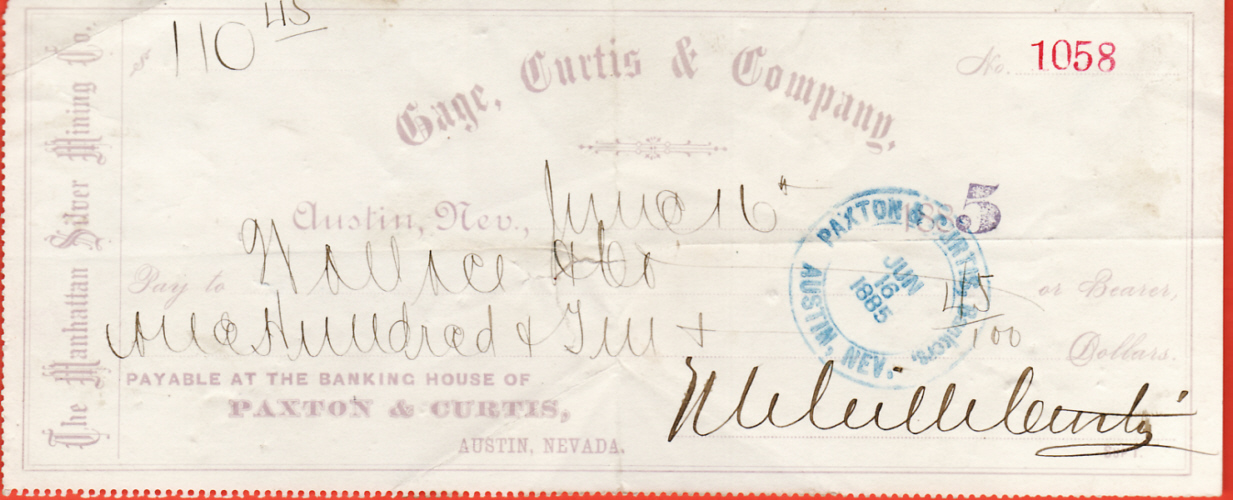 The Manhattan Silver Mining Co.
$ 110 45
No. 1058
Gage, Curtis & Company,
Austin, Nev., June 16th 1885
Pay to Wallace & Co or Bearer,
One Hundred & Ten + 45/100 Dollars.
PAYABLE AT THE BANKING HOUSE OF
PAXTON & CURTIS,
AUSTIN, NEVADA.
Melville Curtis
SUPT.
PAXTON & CURTIS, Bankers,
JUN
16
1885
AUSTIN, NEV.